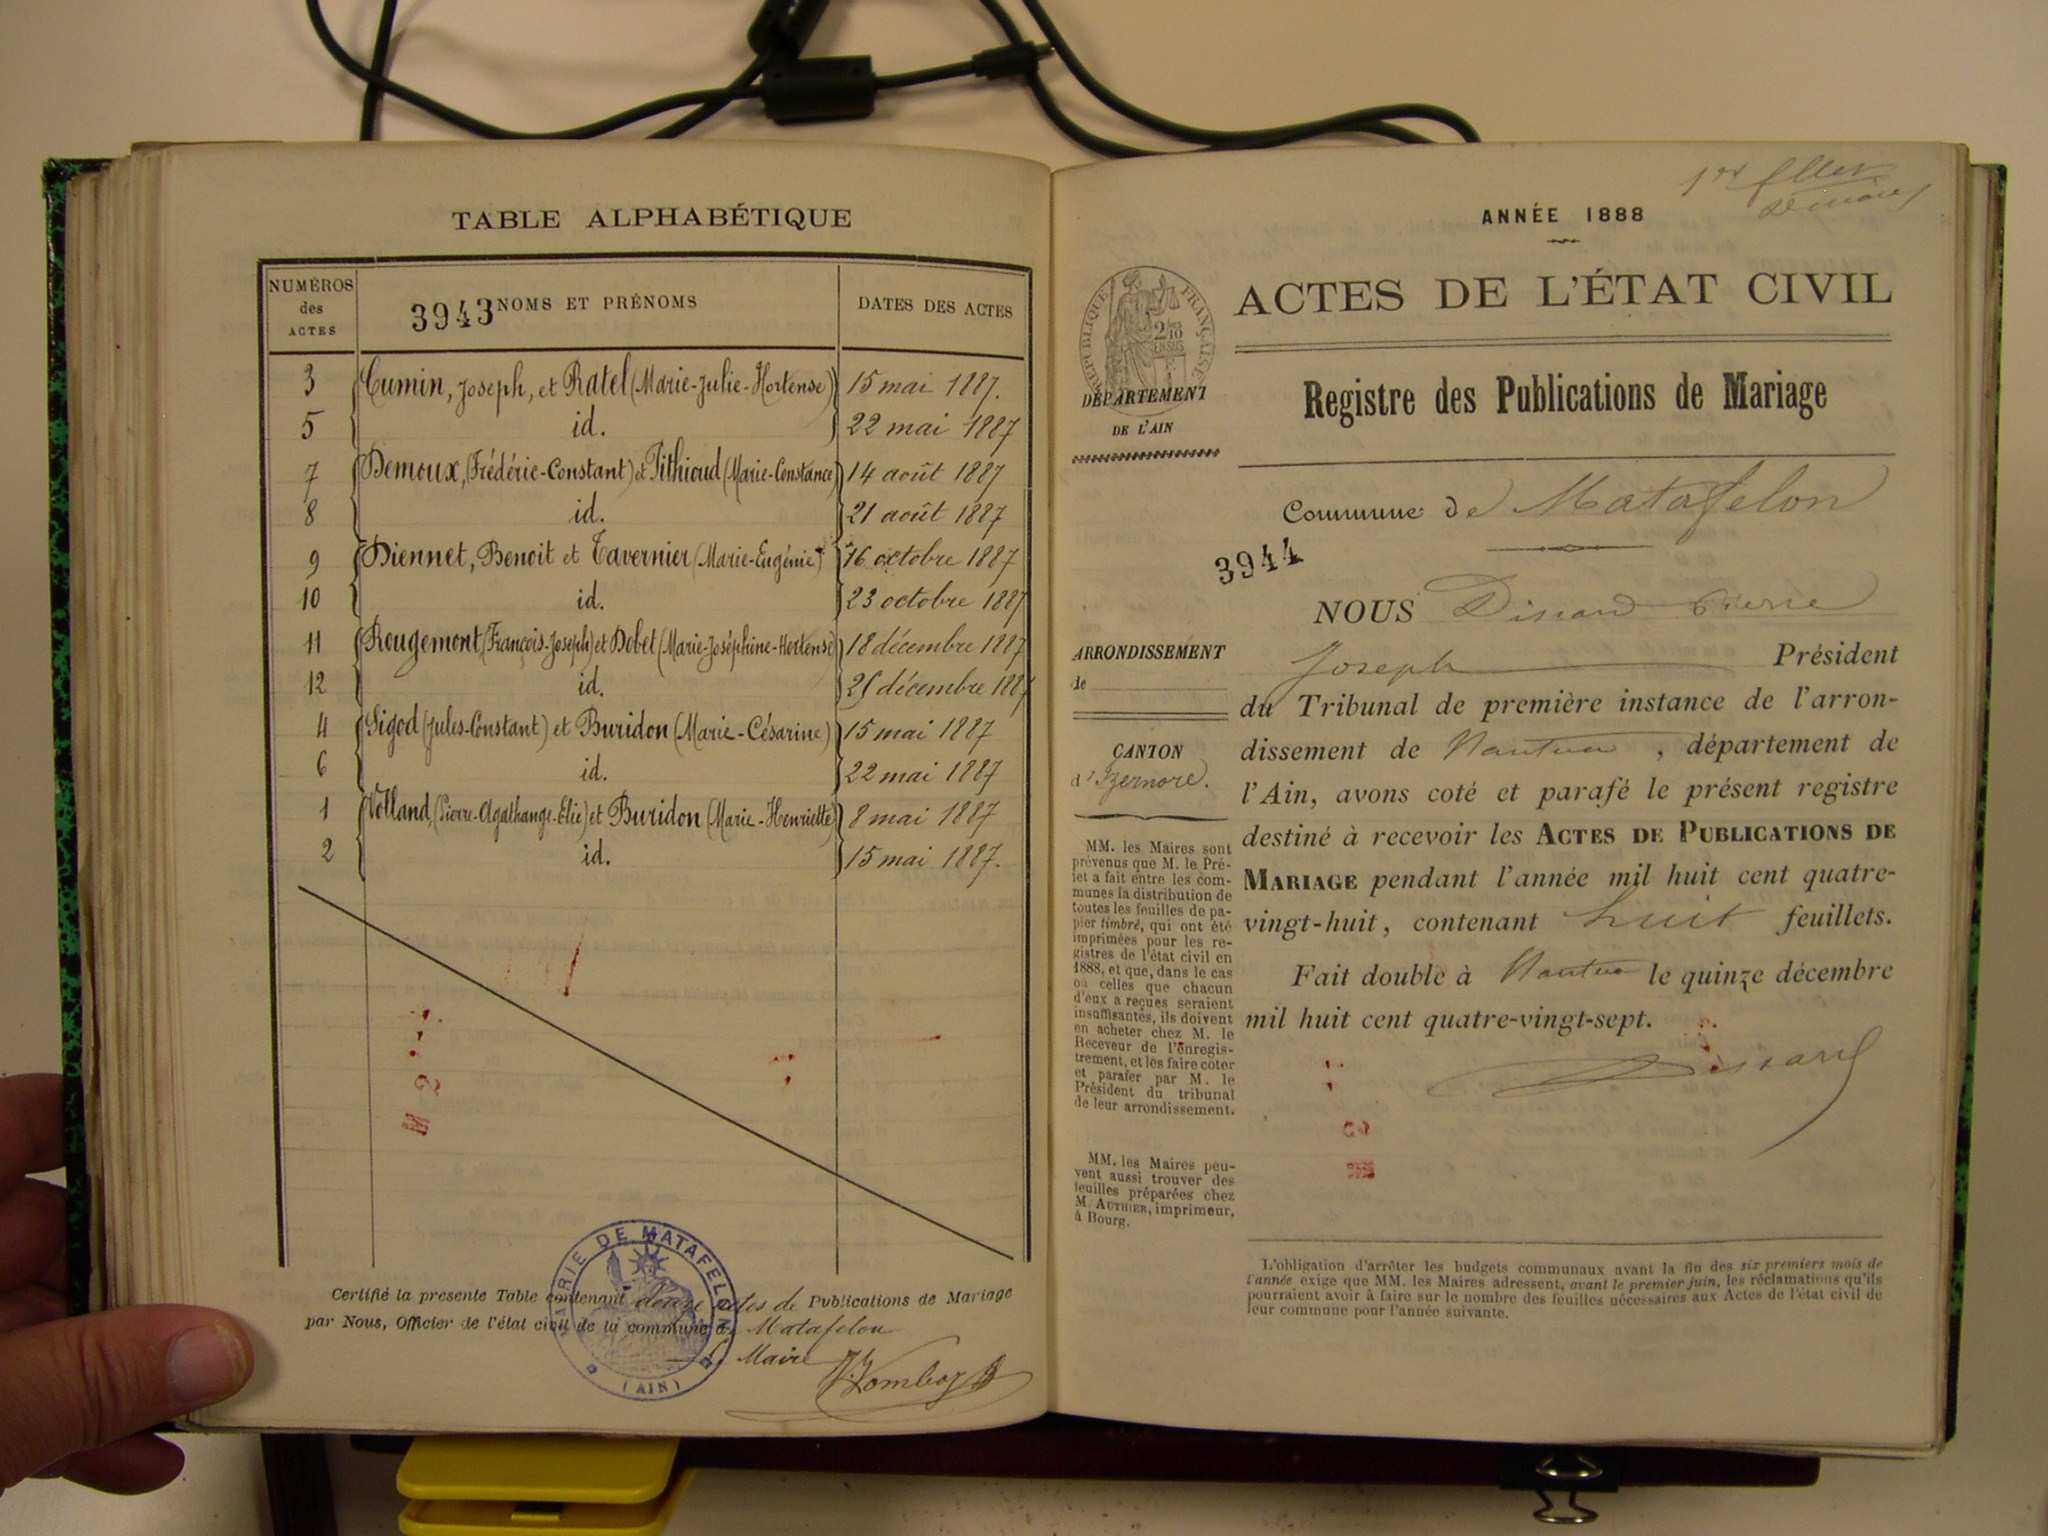 TABLE ALPHABÉTIQUE
NUMÉROS des ACTES
3943 NOMS ET PRÉNOMS
DATES DES ACTES
3 Cumin, Joseph, et Ratel (Marie-Julie-Hortense) 15 mai 1887.
5 id. 22 mai 1887
7 Demoux, (Frédéric-Constant) et Pithioud (Marie-Constance) 14 août 1887
8 id. 21 août 1887
9 Diennet, Benoit et Tavernier (Marie-Eugénie) 16 octobre 1887
10 id. 23 octobre 1887
11 Rougemont, (François-Joseph) et Dobet (Marie-Joséphine-Hortense) 18 décembre 1887
12 id. 25 décembre 1887
4 Sigod (Jules-Constant) et Buridon (Marie-Césarine) 15 mai 1887
6 id. 22 mai 1887
1 Volland, (Pierre-Agathange-Elie) et Buridon (Marie-Henriette) 8 mai 1887
2 id. 15 mai 1887.
Certifié la présente Table contenant douze actes de Publications de Mariage
par Nous, Officier de l'état civil de la commune de Matafelon
Le Maire
MAIRIE DE MATAFELON
(AIN)
1er
ANNÉE 1888
ACTES DE L'ÉTAT CIVIL
RÉPUBLIQUE FRANÇAISE
DÉPARTEMENT
DE L'AIN
Registre des Publications de Mariage
Commune de Matafelon
3944
NOUS Dinard Pierre
Joseph Président
du Tribunal de première instance de l'arron-
dissement de Nantua, département de
l'Ain, avons coté et parafé le présent registre
destiné à recevoir les ACTES DE PUBLICATIONS DE
MARIAGE pendant l'année mil huit cent quatre-
vingt-huit, contenant huit feuillets.
Fait double à Nantua le quinze décembre
mil huit cent quatre-vingt-sept.
ARRONDISSEMENT
de
CANTON
d'Izernore.
MM. les Maires sont
prévenus que M. le Pré-
fet a fait entre les com-
munes la distribution de
toutes les feuilles de pa-
pier timbré, qui ont été
imprimées pour les re-
gistres de l'état civil en
1888, et que, dans le cas
où celles que chacun
d'eux a reçues seraient
insuffisantes, ils doivent
en acheter chez M. le
Receveur de l'enregis-
trement, et les faire coter
et parafer par M. le
Président du tribunal
de leur arrondissement.
MM. les Maires peu-
vent aussi trouver des
feuilles préparées chez
M. AUTHIER, imprimeur,
à Bourg.
L'obligation d'arrêter les budgets communaux avant la fin des six premiers mois de
l'année exige que MM. les Maires adressent, avant le premier juin, les réclamations qu'ils
pourraient avoir à faire sur le nombre des feuilles nécessaires aux Actes de l'état civil de
leur commune pour l'année suivante.